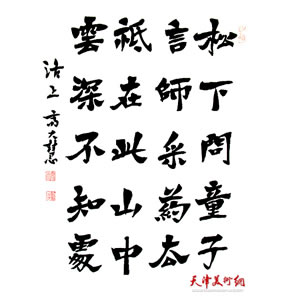 松下問童子
言師采葯去
祗在此山中
雲深不知處
沽上
天津美術網